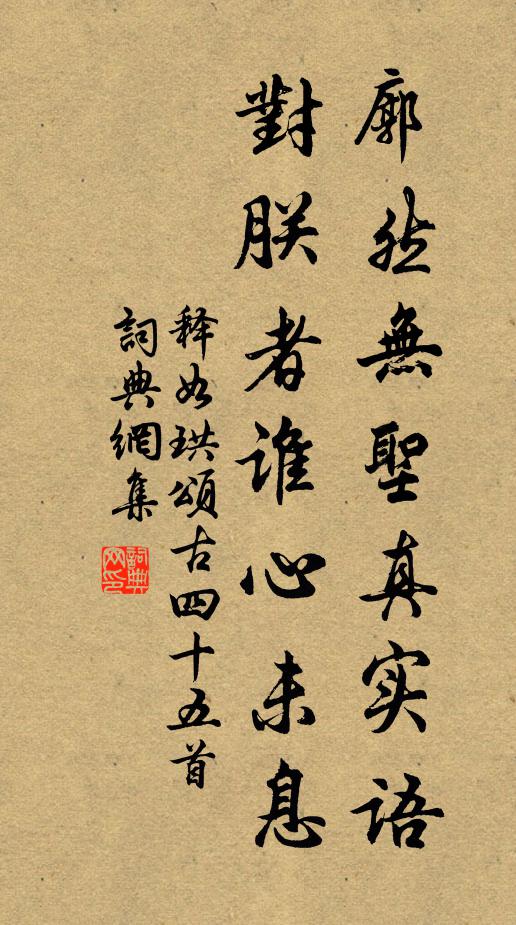 廓然無聖真实语
對朕者谁心未息
释如珙頌古四十五首
詞典網集
詞典网印